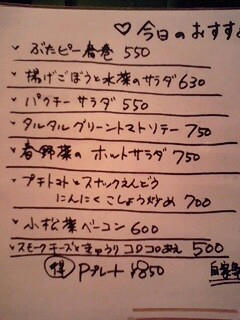 ♡今日のおすす
ぶたピー春巻 550
揚げごぼうと水菜のサラダ 630
パクチーサラダ 550
タルタルグリーントマトソテー 750
春野菜のホットサラダ 750
プチトマトとスナックえんどう
にんにくこしょう炒め 700
小松菜ベーコン 600
スモークチーズときゅうりコロコロあえ 500
Pプレート ¥850
自家製